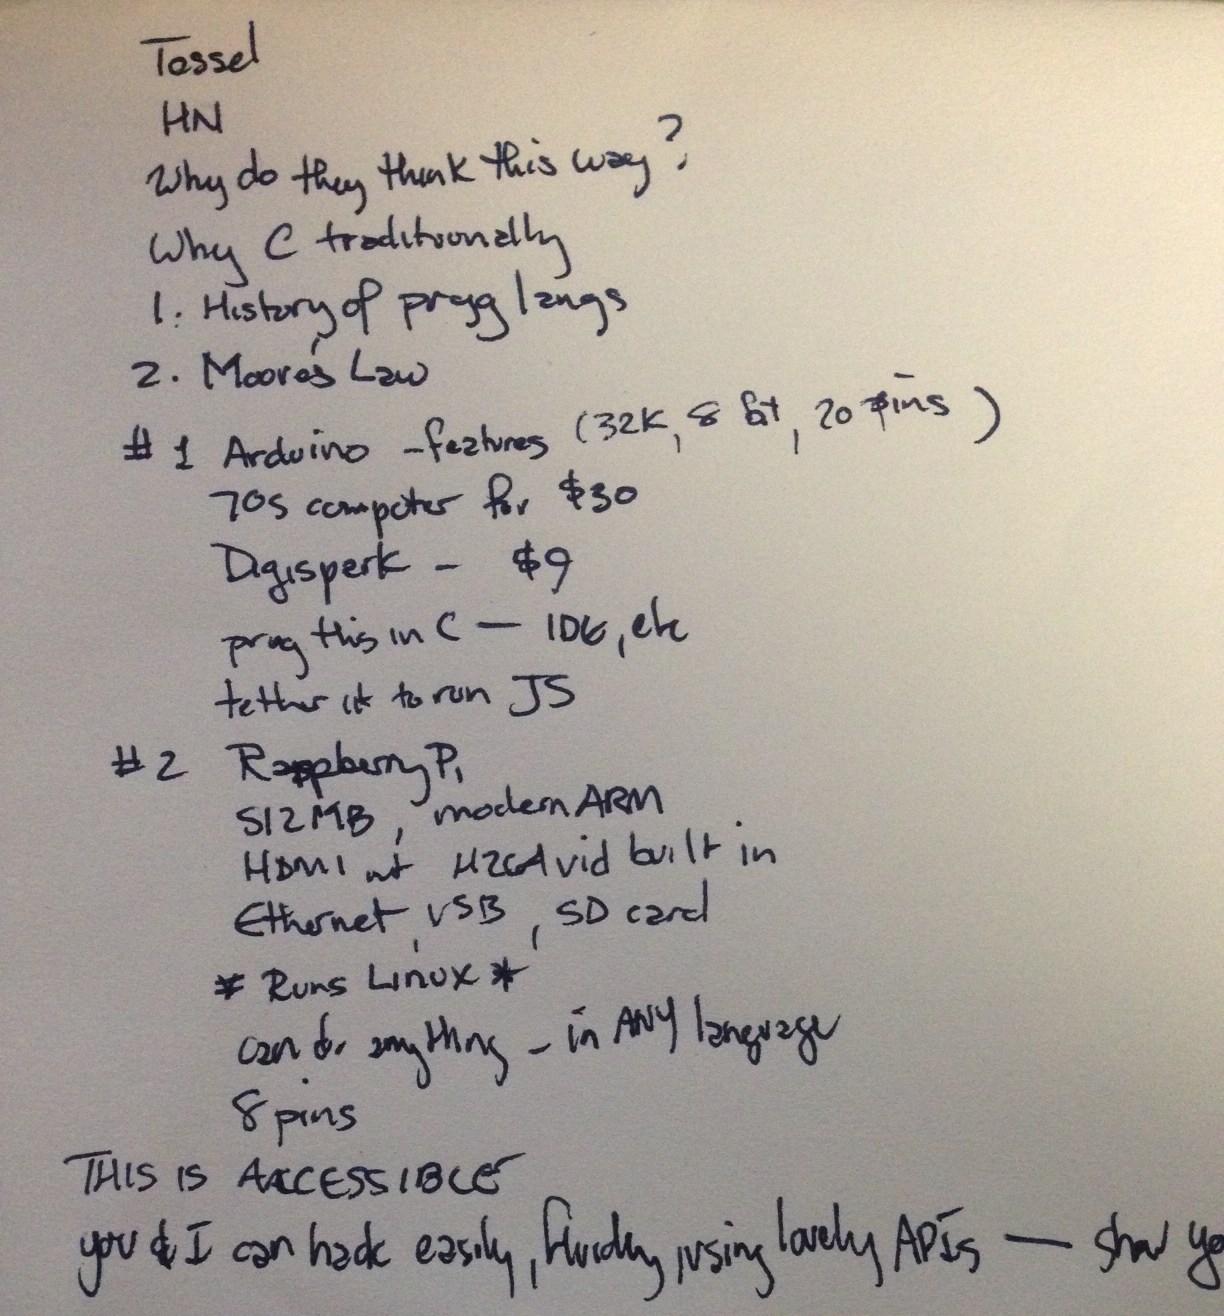 Tessel
HN
Why do they think this way?
Why C traditionally
1. History of progg langs
2. Moore's Law
#1 Arduino - features (32K, 8 bit, 20 pins)
70s computer for $30
Digispark - $9
prog this in C — IDE, etc
tether it to run JS
#2 Raspberry Pi
512MB, modern ARM
HDMI out H264 vid built in
Ethernet, USB, SD card
* Runs Linux *
can do anything - in ANY language
8 pins
THIS IS ACCESSIBLE
you & I can hack easily, fluidly, using lovely APIs — show